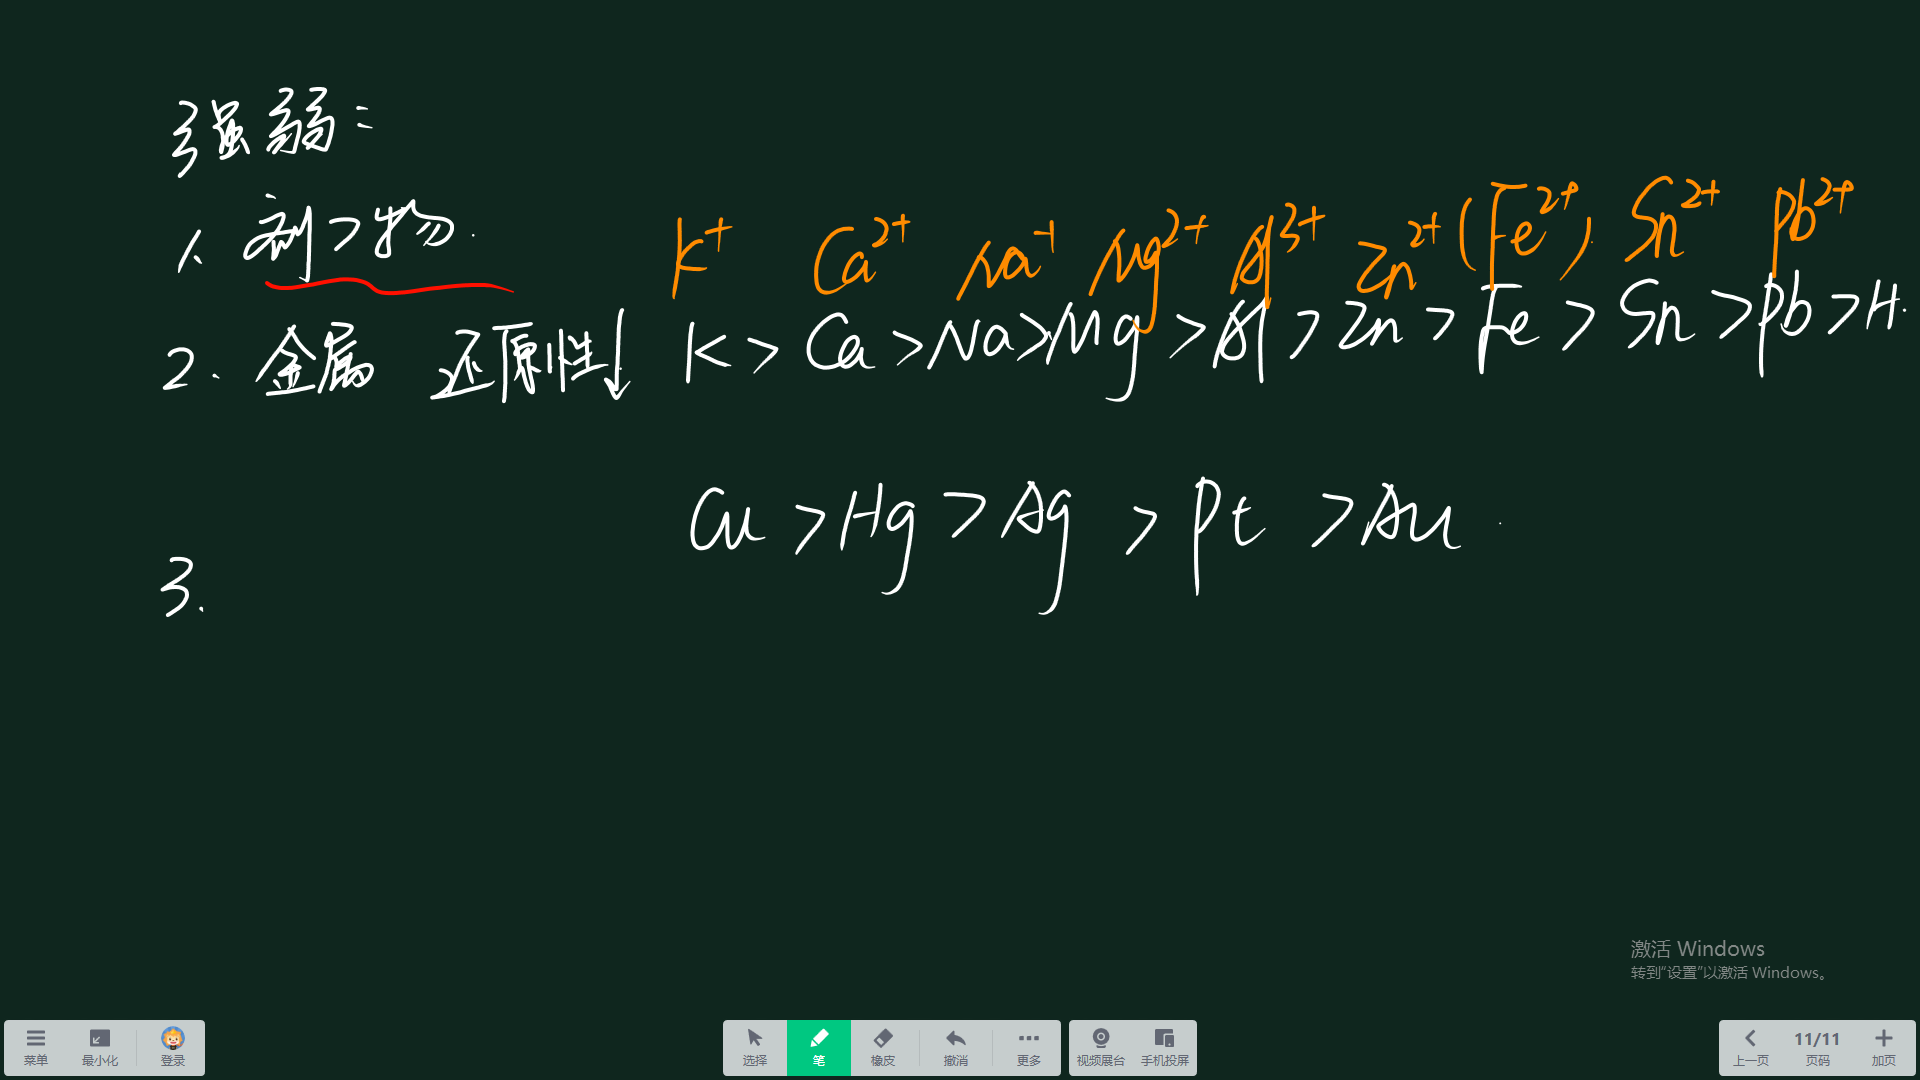 强弱:
1. 剂>物.
K⁺ Ca²⁺ Na⁺¹ Mg²⁺ Al³⁺ Zn²⁺ (Fe²⁺) Sn²⁺ Pb²⁺
2. 金属 还原性↓ K>Ca>Na>Mg>Al>Zn>Fe>Sn>Pb>H.
Cu>Hg>Ag>Pt>Au.
3.
激活 Windows
转到“设置”以激活 Windows。
菜单 最小化 登录 选择 笔 橡皮 撤消 更多 视频展台 手机投屏 上一页 11/11 页码 加页